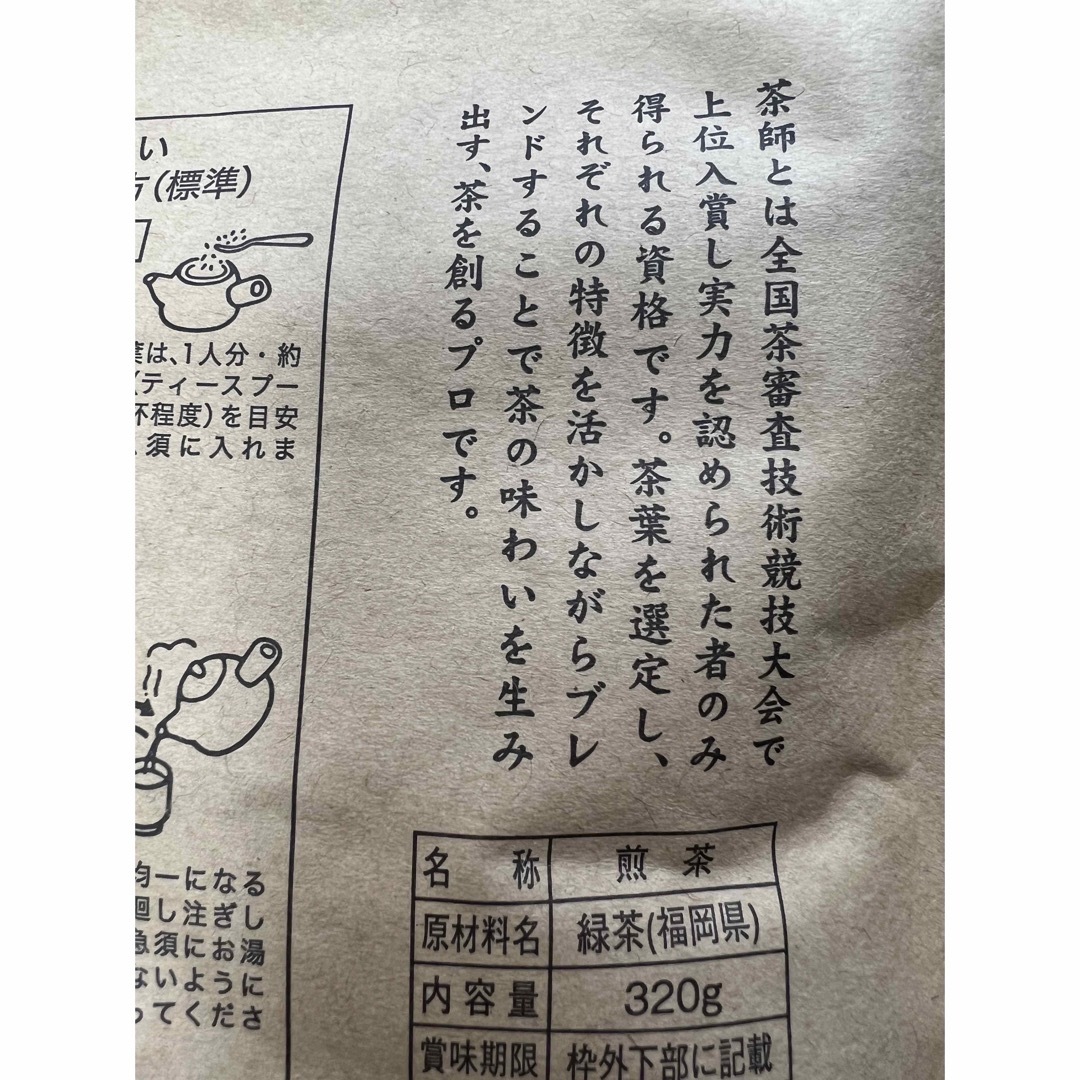 茶師とは全国茶審査技術競技大会で
上位入賞し実力を認められた者のみ
得られる資格です。茶葉を選定し、
それぞれの特徴を活かしながらブレ
ンドすることで茶の味わいを生み
出す、茶を創るプロです。
い
方(標準)
葉は、1人分・約
(ティースプー
杯程度)を目安
須に入れま
均一になる
廻し注ぎし
急須にお湯
ないように
ってくださ
名称 煎茶
原材料名 緑茶(福岡県)
内容量 320g
賞味期限 枠外下部に記載